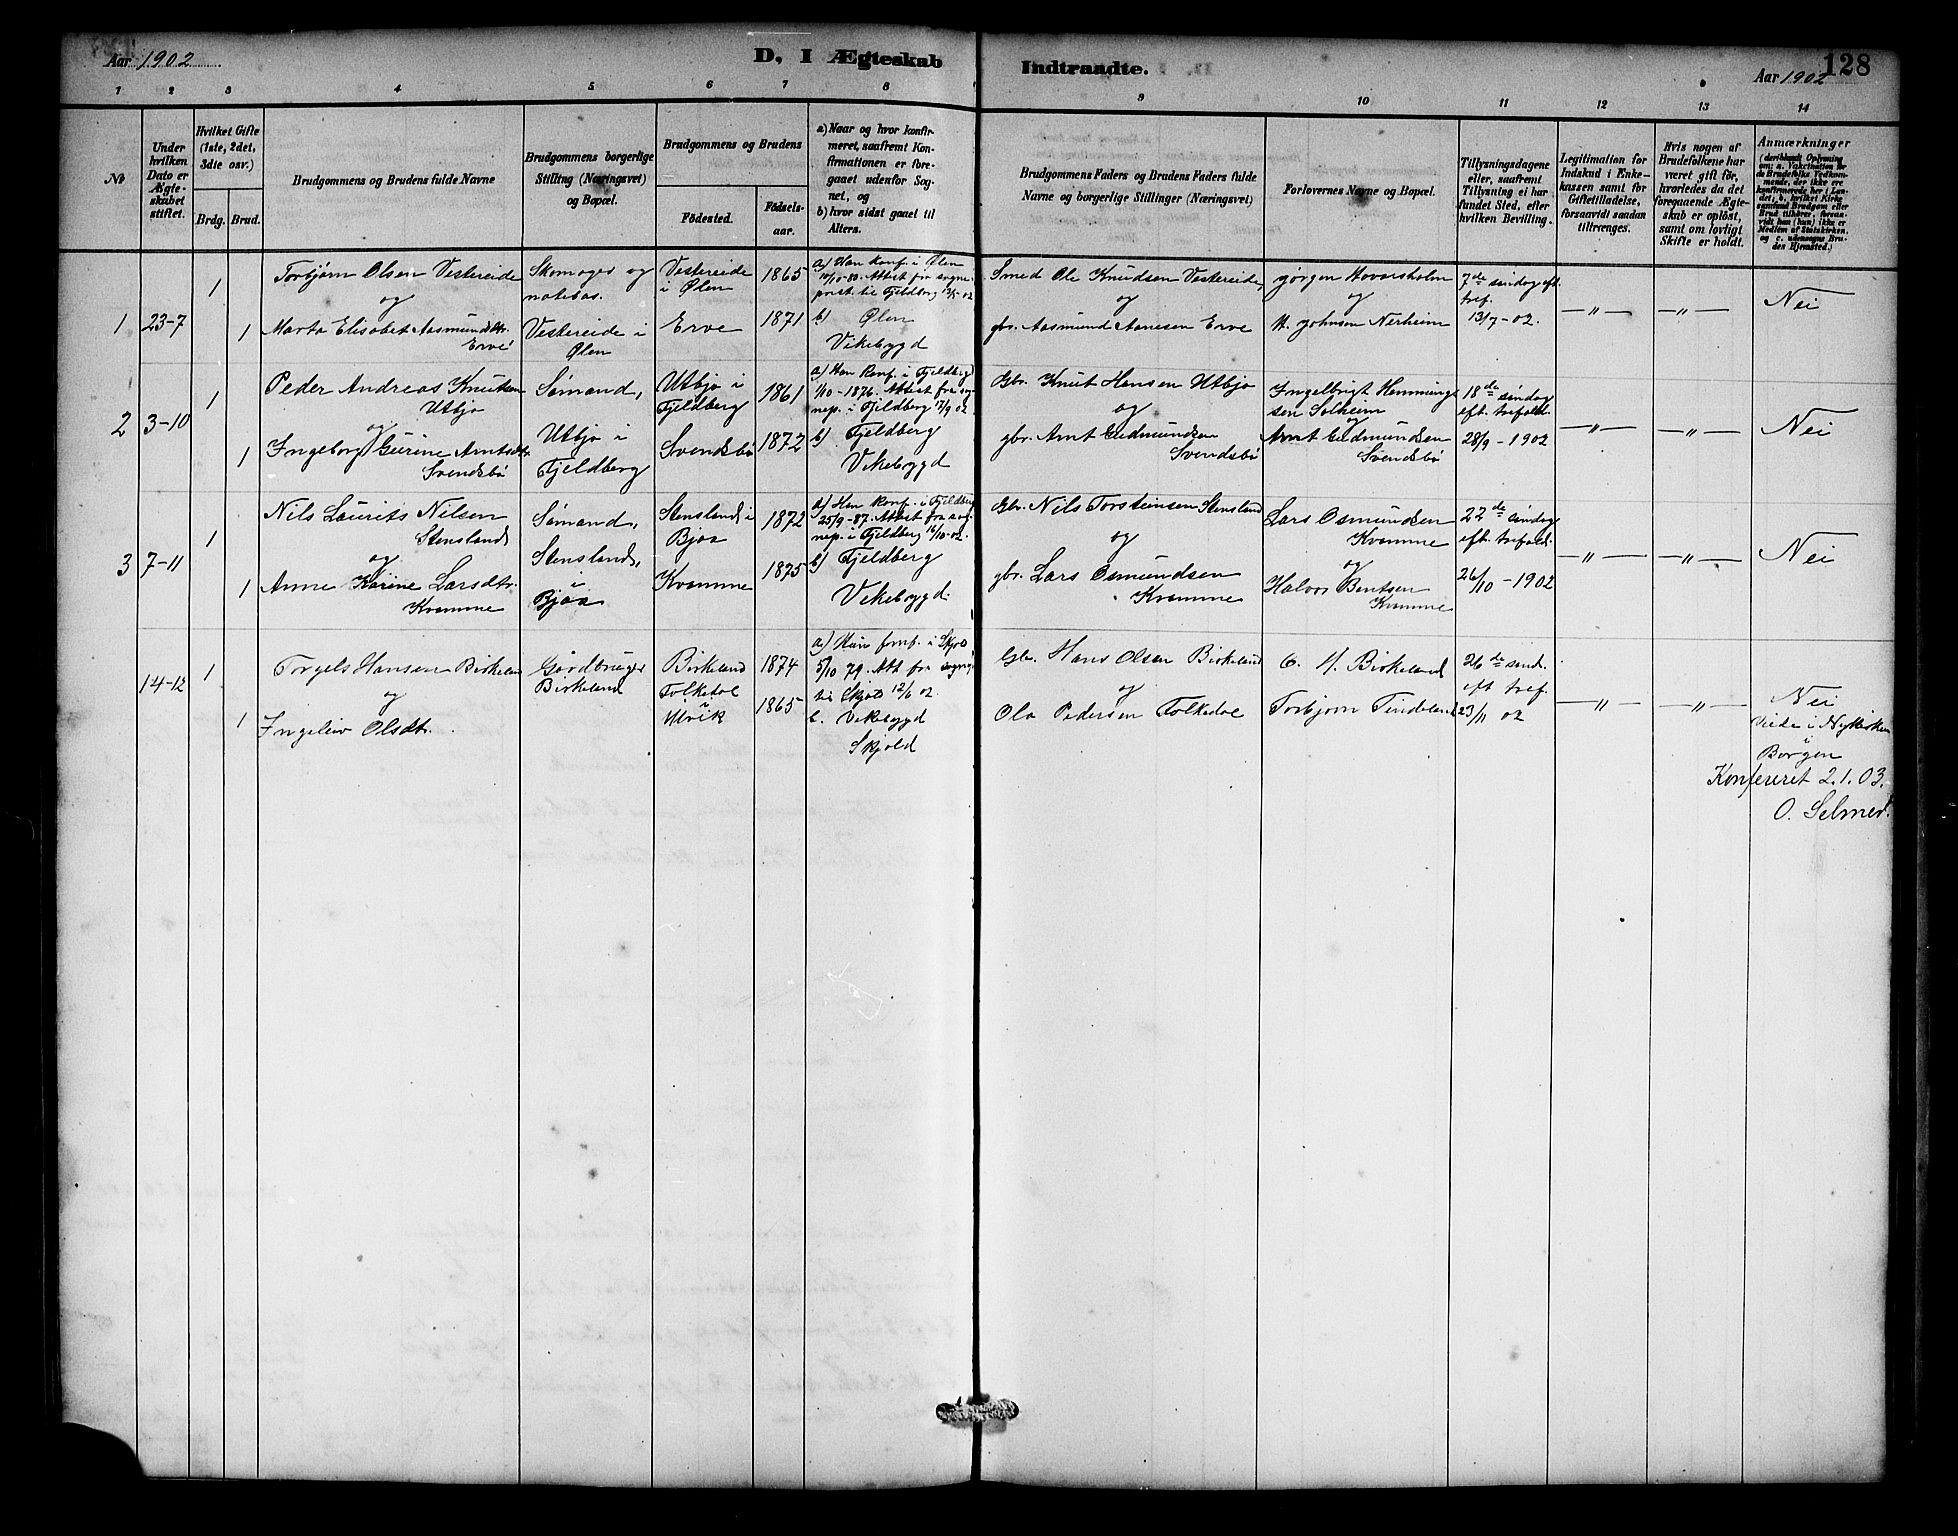 Aar 1902
D, I Ægteskab Indtraadte.
Aar 1902
128
1 2 3 4 5 6 7 8 9 10 11 12 13 14
№
Under hvilken Dato er Ægteskabet stiftet.
Hvilket Gifte (1ste, 2det, 3die osv.)
Brdg. Brud.
Brudgommens og Brudens fulde Navne
Brudgommens borgerlige Stilling (Næringsvei) og Bopæl.
Brudgommens og Brudens
Födested.
Födsels-aar.
a) Naar og hvor konfirmeret, saafremt Konfirmationen er foregaaet udenfor Sognet, og
b) hvor sidst gaaet til Alters.
Brudgommens Faders og Brudens Faders fulde Navne og borgerlige Stillinger (Næringsvei)
Forlovernes Navne og Bopæl.
Tillysningsdagene eller, saafremt Tillysning ei har fundet Sted, efter hvilken Bevilling.
Legitimation for Indskud i Enkekassen samt for Giftetilladelse, forsaavidt saadan tiltrænges.
Hvis nogen af Brudefolkene har været gift för, hvorledes da det foregaaende Ægteskab er oplöst, samt om lovligt Skifte er holdt.
Anmærkninger
1 23-7
1
Torbjørn Olsen Vestereide
og
1 Marta Elisabet Aasmundsdtr. Erve
Skomager og notebas.
Vestereide i Ølen
Vestereide i Ølen 1865
Erve 1871
a) Han konf. i Ølen
b) Ølen
Vikebygd
Smed Ole Knudsen Vestereide,
og
gbr. Aasmund Aanesen Erve
Jørgen Hovarsholm
og
M. Johnsen Nerheim
7de søndag eft. tref.
13/7-02.
—"— —"— Nei
2 3-10
1
Peder Andreas Knutsen Utbjø
og
1 Ingeborg Gurine Arntsdtr. Svendsbø
Sømand,
Utbjø i Fjeldberg
Utbjø i Fjeldberg 1861
Svendsbø 1872
a) Han konf. i Fjeldberg
1/10-1876. Attest fra sognep. i Fjeldberg 17/9 02.
b) Fjeldberg
Vikebygd
Gbr. Knut Hansen Utbjø
og
gbr. Arnt Gudmundsen Svendsbø
Ingelbrigt Hemmingsen Solheim
og
Arnt Gudmundsen Svendsbø
18de søndag eft. trefold.
28/9-1902
—"— —"— Nei
3 7-11
1
Nils Laurits Nilsen Stensland
og
1 Anne Karine Larsdtr. Kvamme
Sømand,
Stensland, i Bjoa
Stensland i Bjoa 1872
Kvamme 1875
a) Han konf. i Fjeldberg
25/9-87. Attest fra sognep. i Fjeldberg 16/10-02.
b) Fjeldberg
Vikebygd.
Gbr. Nils Torsteinsen Stensland
og
gbr. Lars Osmundsen Kvamme
Lars Osmundsen Kvamme
og
Halvor Bentsen Kvamme
22de søndag eft. trefold.
26/10-1902
—"— —"— Nei
14-12
1
Torgels Hansen Birkeland
og
1 Ingeleiv Olsdtr.
Gårdbruger Birkeland
Birkeland 1874
Folkedal i Ulvik 1865
a) Hun konf. i Skjold
5/10 79. Att fra sognepr. til Skjold 12/6 02.
b. Vikebygd
Skjold
Gbr. Hans Olsen Birkeland
og
Ola Pedersen Folkedal
O. H. Birkeland
Torbjørn Tindeland
26de sønd. eft tref.
23/11 02
—"— —"— Nei
Viede i Nykirken i Bergen
Konfereret 2.1.03.
O. Selmer.